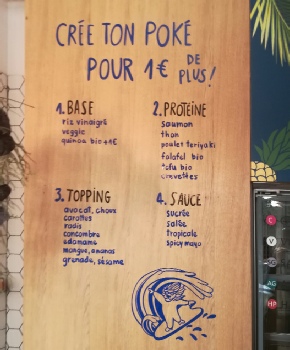 CRÉE TON POKÉ
POUR 1€ DE PLUS!
1. BASE
riz vinaigré
veggie
quinoa bio +1€
2. PROTÉINE
saumon
thon
poulet teriyaki
falafel bio
tofu bio
crevettes
3. TOPPING
avocat, choux
carottes
radis
concombre
edamame
mangue, ananas
grenade, sésame
4. SAUCE
sucrée
salée
tropicale
spicy mayo
C
V
AG
HP